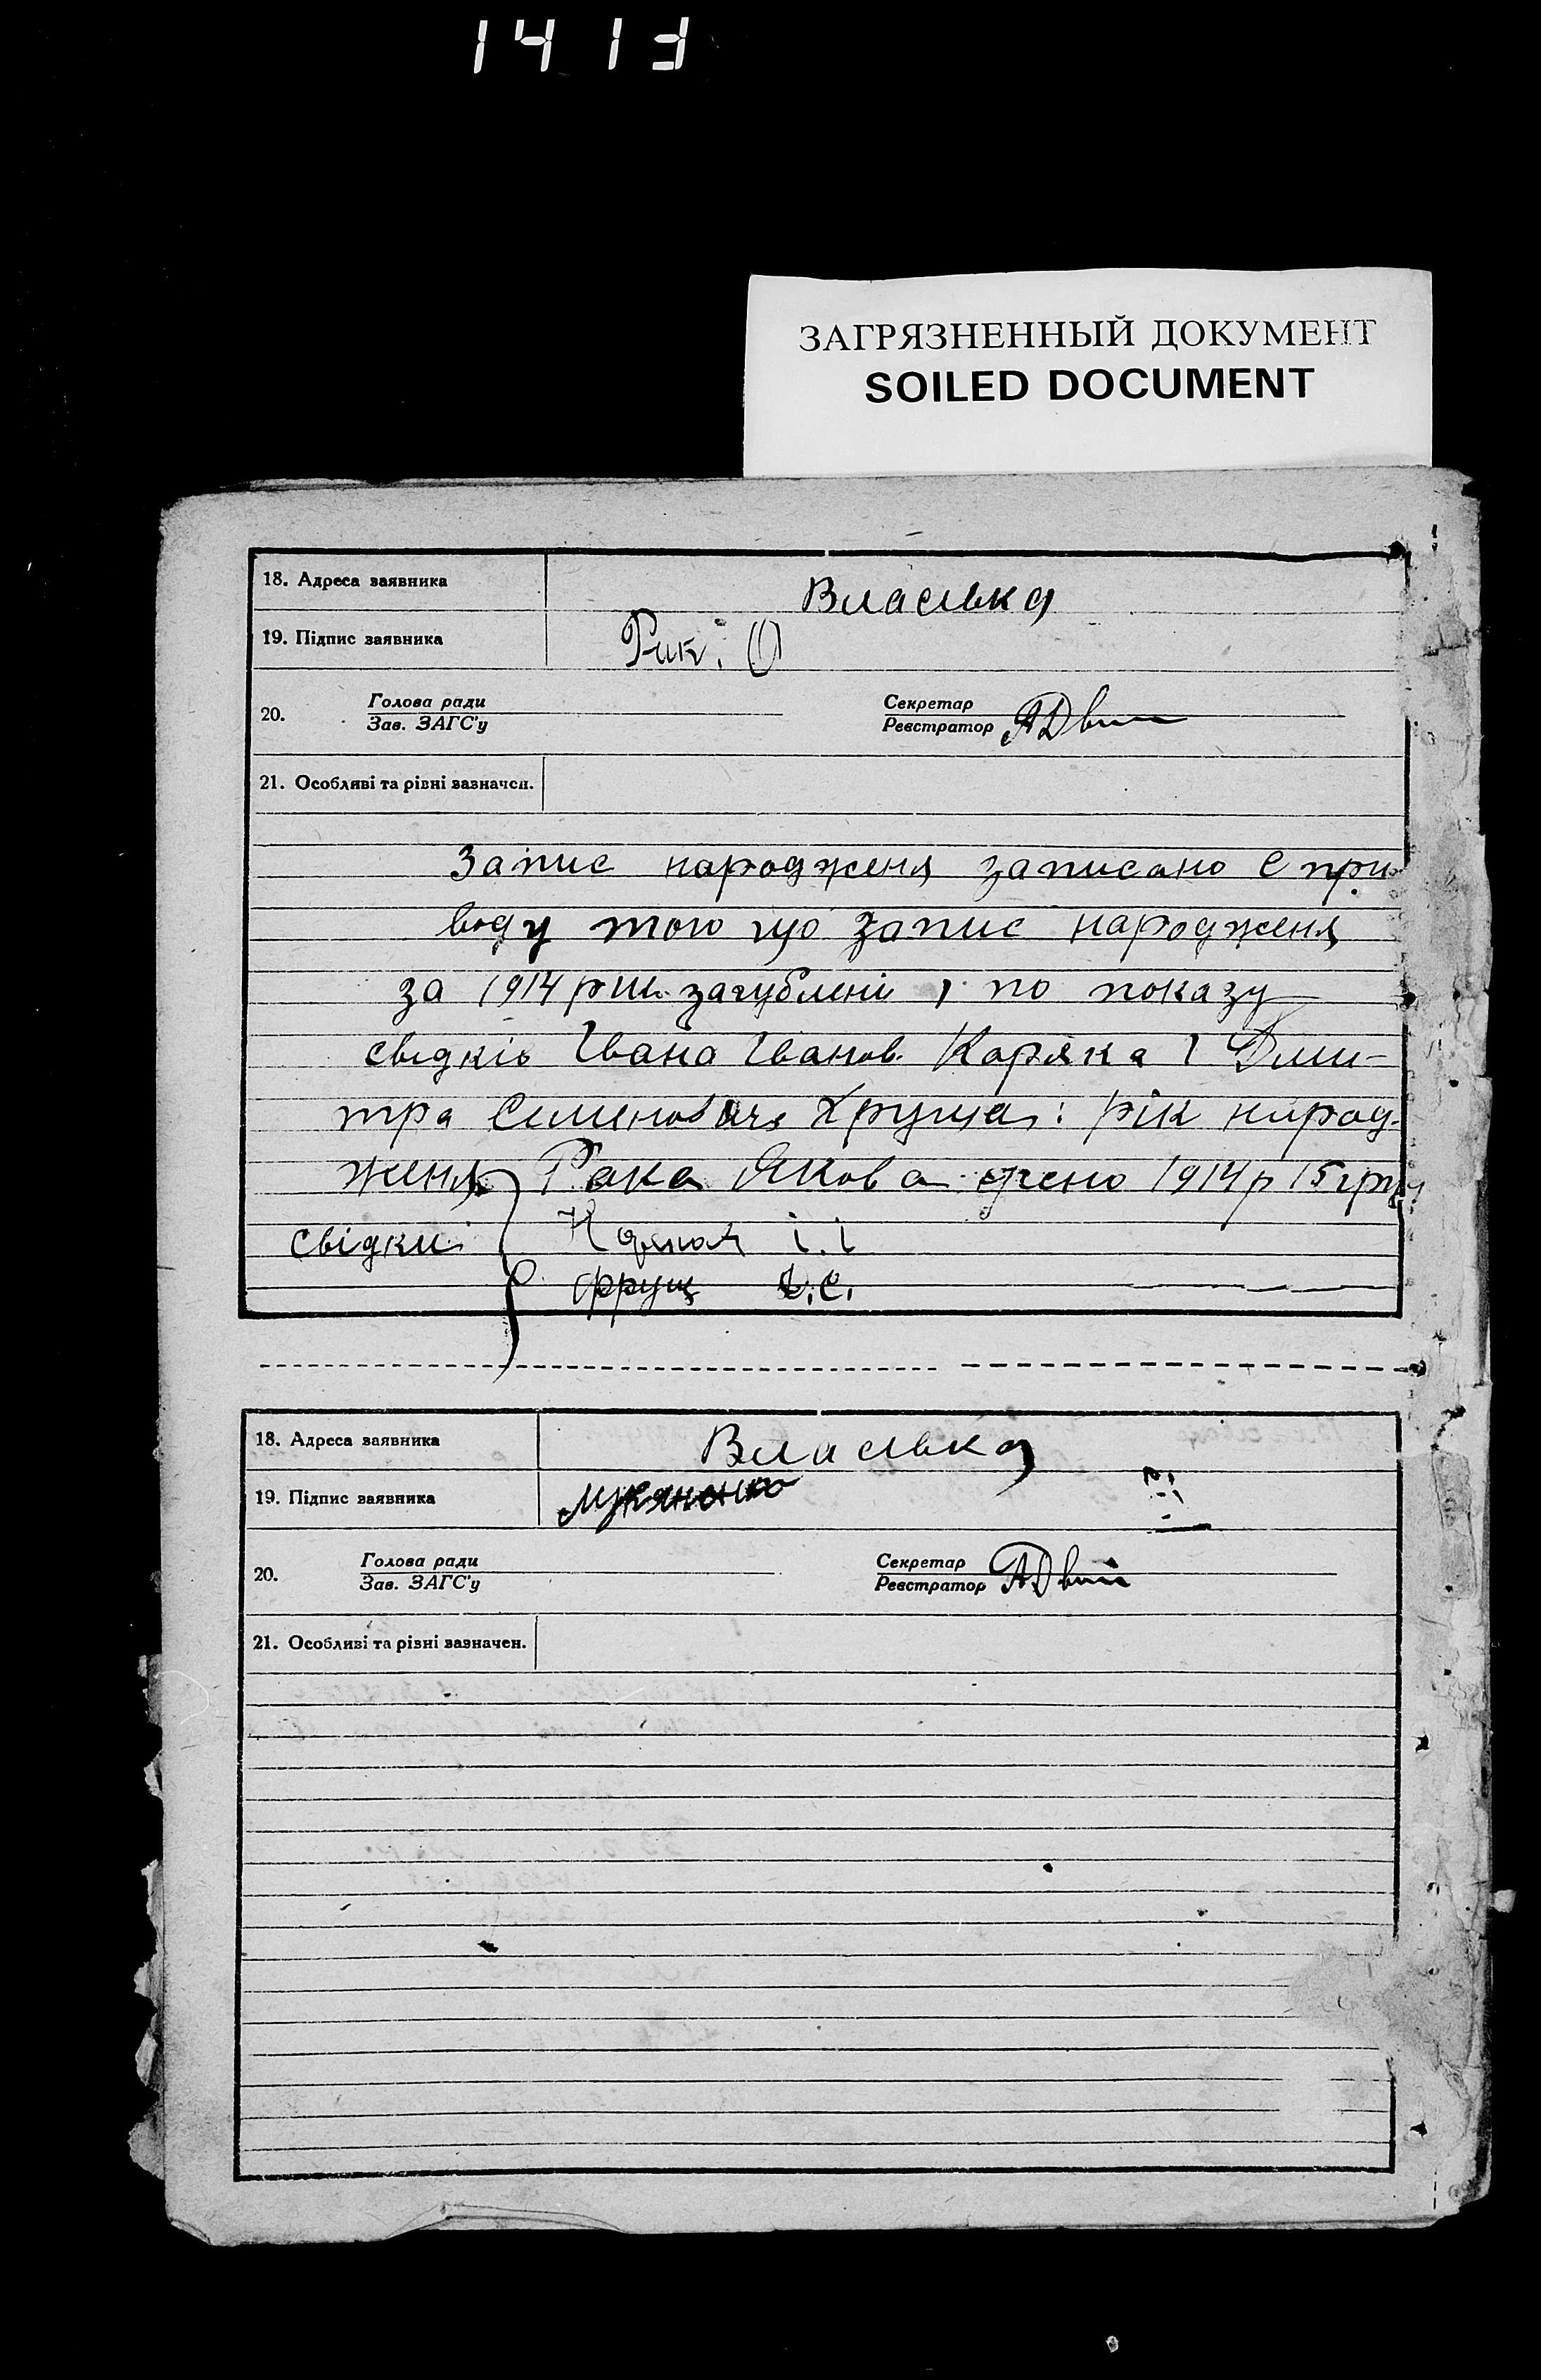 1413
ЗАГРЯЗНЕННЫЙ ДОКУМЕНТ
SOILED DOCUMENT
18. Адреса заявника
Власівка
19. Підпис заявника
Рик. О
20.
Голова ради
Зав. ЗАГС'у
Секретар
Реєстратор
21. Особливі та рівні зазначен.
Запис народженя записано с при-
воду того що запис народженя
за 1914 рик загублені і по показу
свідків Івана Іванов. Коряка і Дми-
тра Семеновича Хруща: рік народ-
женя Рака Якова 1914 р 15 гру
свідки
і.і
Хрущ
18. Адреса заявника
Власівка
19. Підпис заявника
Мукяненко
20.
Голова ради
Зав. ЗАГС'у
Секретар
Реєстратор
21. Особливі та рівні зазначен.